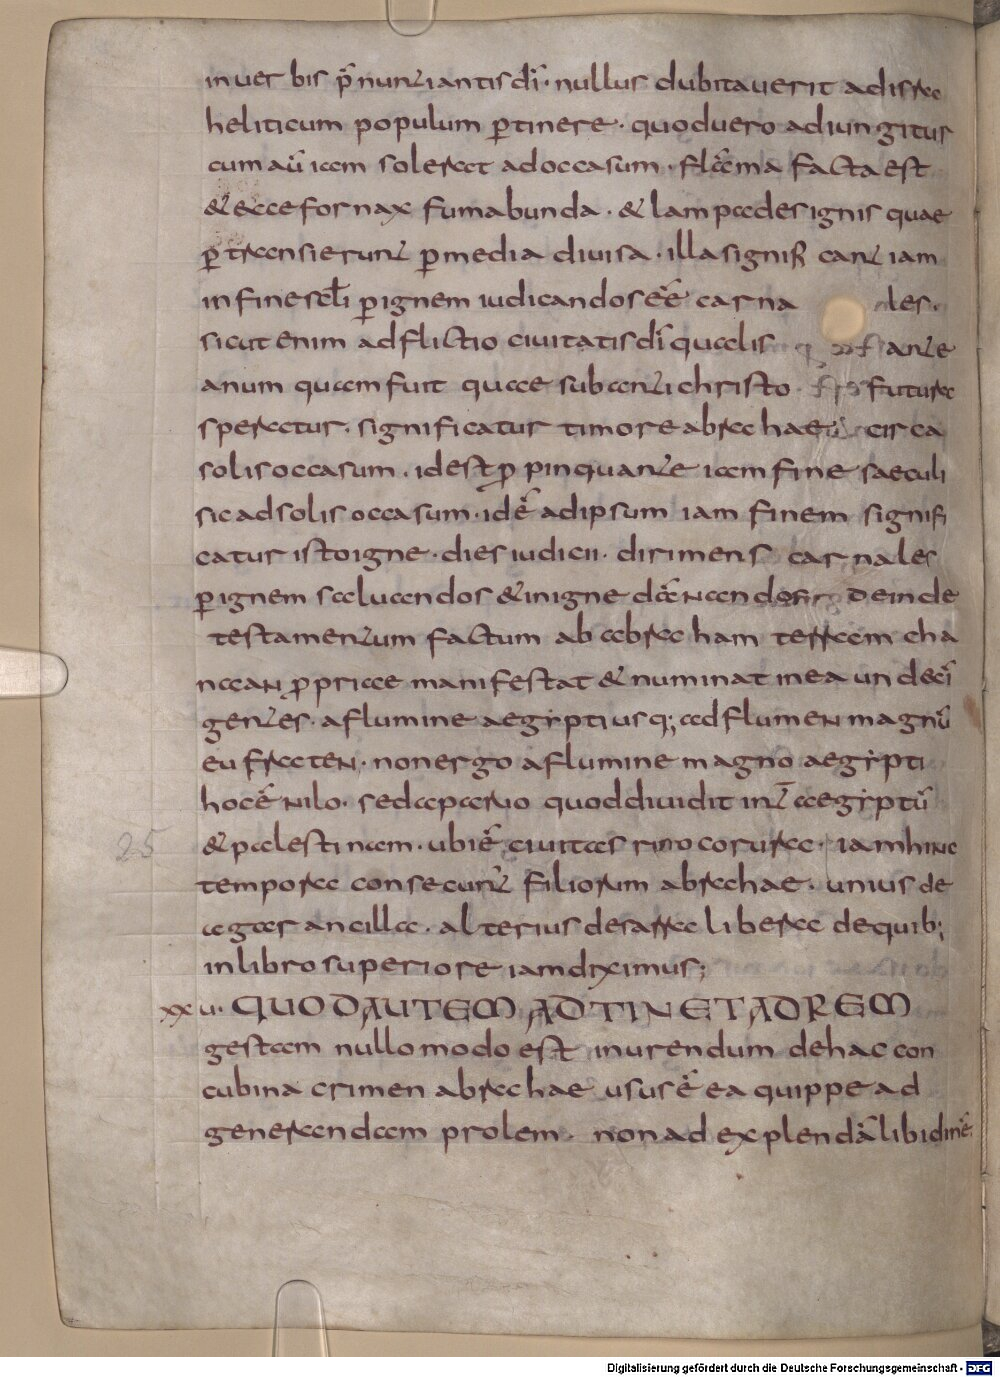 inuerbis p̄nuntiantis dī · nullus dubitauerit adisra
heliticum populum p̱tinere · quoduero adiungitur
cum aū iam sol erat adoccasum · flāma facta est
& ecce fornax fumabunda · & lampades ignis quae
p̱transierunt p̱ media diuisa · illa signif̄ cant iam
in fine sclī p̱ ignem iudicandos eē̄ carna les ·
sicut enim adflictio ciuitatis dī qualis ante
anum quam fuit quae sub anti christo · futura
speratur · significatur timore abrahae circa
solis occasum · id est p̱pinquante iam fine saeculi
sic ad solis occasum · id ē̄ ad ipsum iam finem signifi
catur isto igne · dies iudicii · dirimens carnales
p̱ ignem saluandos & in igne dāNandos deinde
testamentum factum ab abraham terram cha
naaN p̱priae manifestat & numinat in ea undecī
gentes · aflumine aegypti usq; ad flumeN magnū
eufrateN · non ergo aflumine magno aegypti
hoc ē̄ Nilo · sed aparuo quod diuidit int̄ aegyptū
& palestinam · ubi ē̄ ciuitas rinocorura · iam hiNc
tempora consecunt filiorum abrahae · unius de
agar ancilla · alterius desarra libera dequib;
in libro superiore iam diximus;
xxu · QUOD AUTEM ADTINET AD REM
gestam nullo modo est inurendum dehac con
cubina crimen abrahae usus ē̄ ea quippe ad
generandam prolem · non ad explendā libidinē ·
25
Digitalisierung gefördert durch die Deutsche Forschungsgemeinschaft - DFG